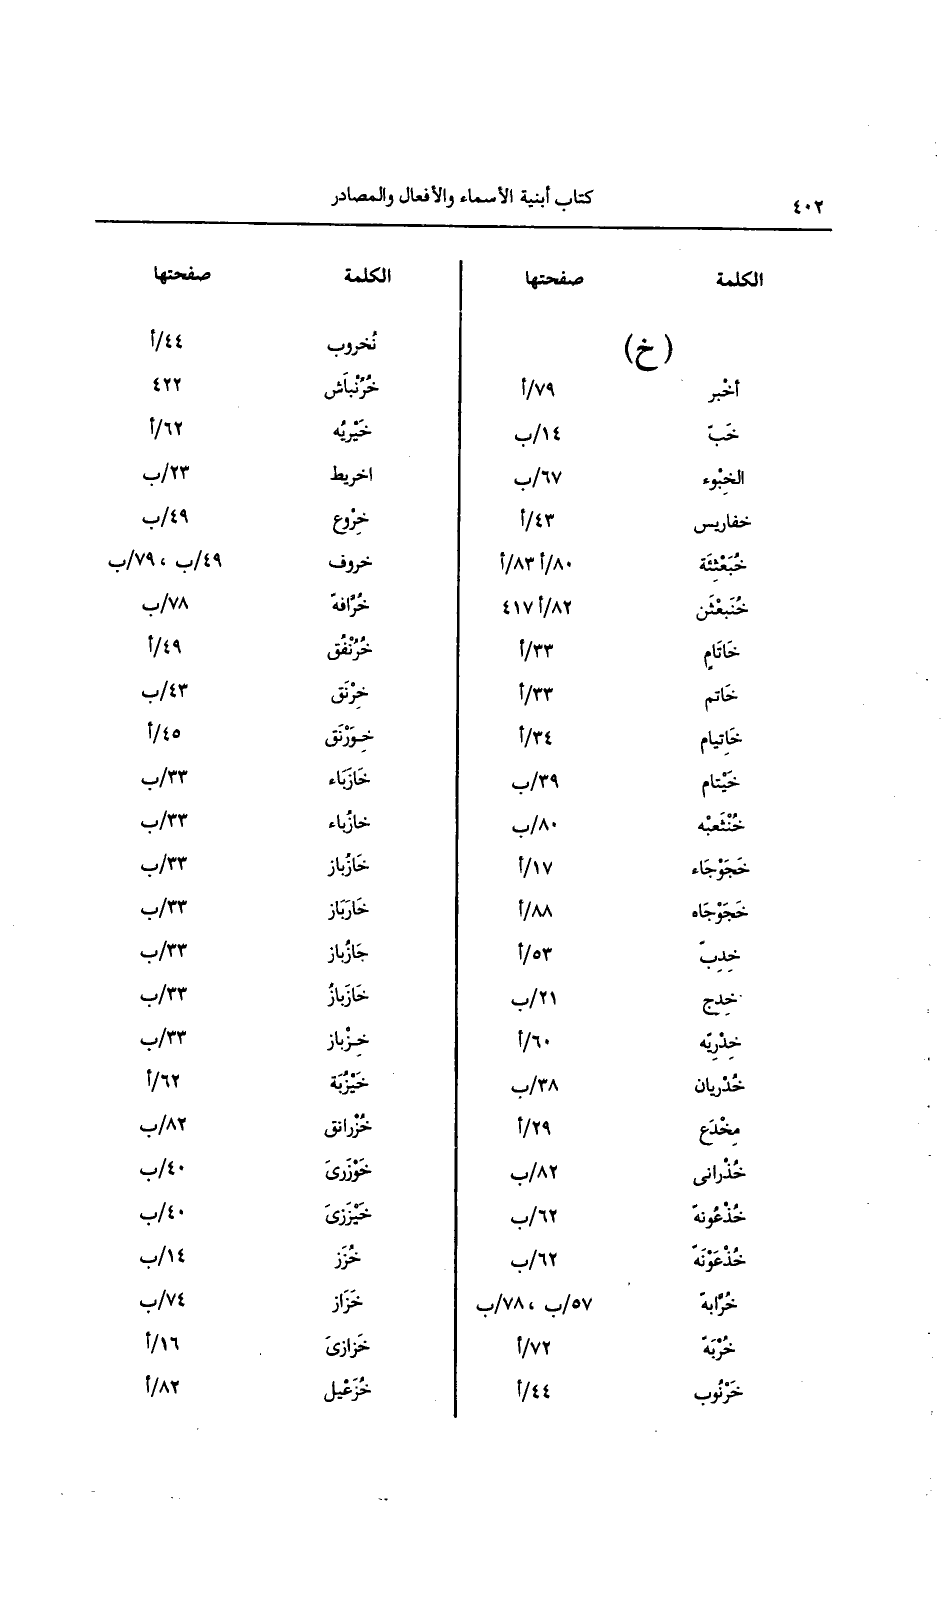 ٤٠٢
كتاب أبنية الأسماء والأفعال والمصادر
الكلمة صفحتها
(خ)
أخْبر ٧٩/أ
خَبّ ١٤/ب
الخِبْوء ٦٧/ب
خفاريس ٤٣/أ
خُبَعْثِنَة ٨٠/أ ٨٣/أ
خُنَبعْثَن ٨٢/أ ٤١٧
خَاتَام ٣٣/أ
خَاتم ٣٣/أ
خَاتِيام ٣٤/أ
خَيْتام ٣٩/ب
خُنْثَعبْه ٨٠/ب
خَجَوْجَاء ١٧/أ
خَجَوْجَاه ٨٨/أ
خِدِبّ ٥٣/أ
خِدِج ٢١/ب
خِدْرِيّه ٦٠/أ
خُدْريان ٣٨/ب
مِخْدَع ٢٩/أ
خُذْرانى ٨٢/ب
خُذْعُونهّ ٦٢/ب
خُذْعَوْنَهّ ٦٢/ب
خُرّابهّ ٥٧/ب ، ٧٨/ب
خُرْبَهّ ٧٢/أ
خَرْنُوب ٤٤/أ
الكلمة صفحتها
نُخروب ٤٤/أ
خُرُنْباَش ٤٢٢
خَيْريُه ٦٢/أ
اخريط ٢٣/ب
خِرْوع ٤٩/ب
خروف ٤٩/ب ، ٧٩/ب
خُرَّافهّ ٧٨/ب
خُرُنْفُق ٤٩/أ
خِرْنَق ٤٣/ب
خِوَرْنَق ٤٥/أ
خَازَبَاء ٣٣/ب
خازُباء ٣٣/ب
خَازُباز ٣٣/ب
خَارَبَاز ٣٣/ب
جَازُباز ٣٣/ب
خَازَبازُ ٣٣/ب
خِزْباز ٣٣/ب
خَيْزُبَة ٦٢/أ
خُزْرانق ٨٢/ب
خَوْزَرىَ ٤٠/ب
خَيْزَزىَ ٤٠/ب
خُزَز ١٤/ب
خَزَاز ٧٤/ب
خَزازىَ ١٦/أ
خُزَعْيل ٨٢/أ